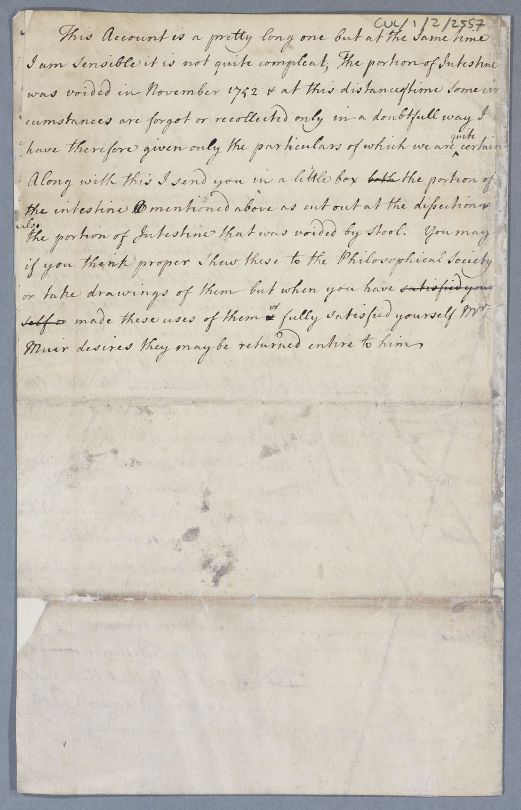 CUL/1/2/2557
This Account is a pretty long one but at the same time
I am sensible it is not quite compleat, The portion of Intestine
was voided in November 1752 & at this distance of time some cir
cumstances are forgot or recollected only in a doubtfull way I
quite
have therefore given only the particulars of which we are certain
Along with this I send you in a little box both the portion of
the intestine mentioned above as cut out at the dissection &
also
the portion of Intestine that was voided by stool. You may
if you think proper shew these to the Philosophical Society
or take drawings of them but when you have satisfied your
self or made these uses of them or fully satisfied yourself Mr
Muir desires they may be returned entire to him